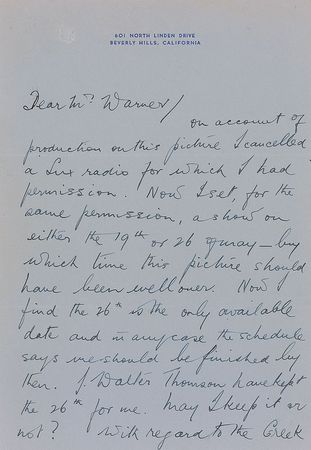 601 NORTH LINDEN DRIVE
BEVERLY HILLS, CALIFORNIA
Dear Mr Warner/
on account of
production on this picture I cancelled
a Lux radio for which I had
permission. Now I set, for the
same permission, a show on
either the 19th or 26 of may – by
which time this picture should
have been well over. Now I
find the 26th is the only available
date and in any case the schedule
says we should be finished by
then. J. Walter Thomson have kept
the 26th for me. May I keep it or
not? With regard to the Greek